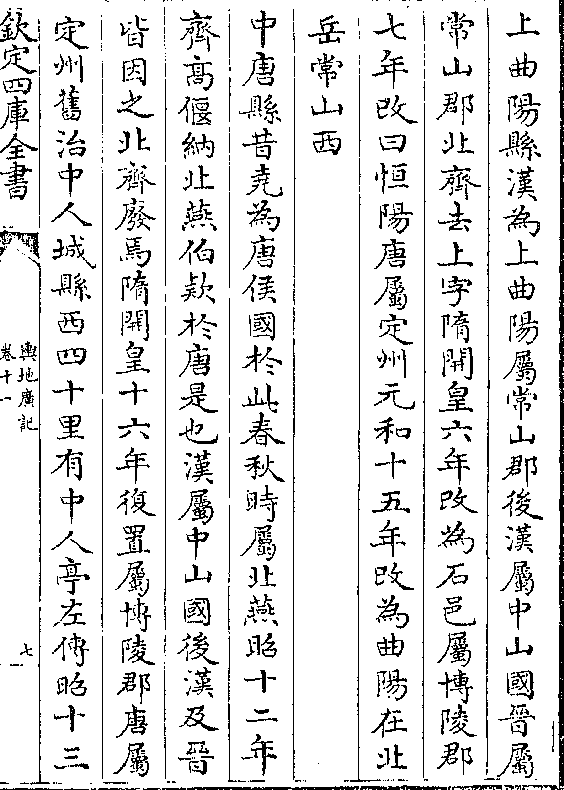 上曲陽縣漢為上曲陽屬常山郡後漢屬中山國晉屬
常山郡北齊去上字隋開皇六年改為石邑屬博陵郡
七年改曰恒陽唐屬定州元和十五年改為曲陽在北
岳常山西
中唐縣昔堯為唐侯國於此春秋時屬北燕昭十二年
齊高偃納北燕伯欵於唐是也漢屬中山國後漢及晉
皆因之北齊廢焉隋開皇十六年復置屬博陵郡唐屬
定州舊治中人城縣西四十里有中人亭左傳昭十三
欽定四庫全書
輿地廣記
卷十一
七